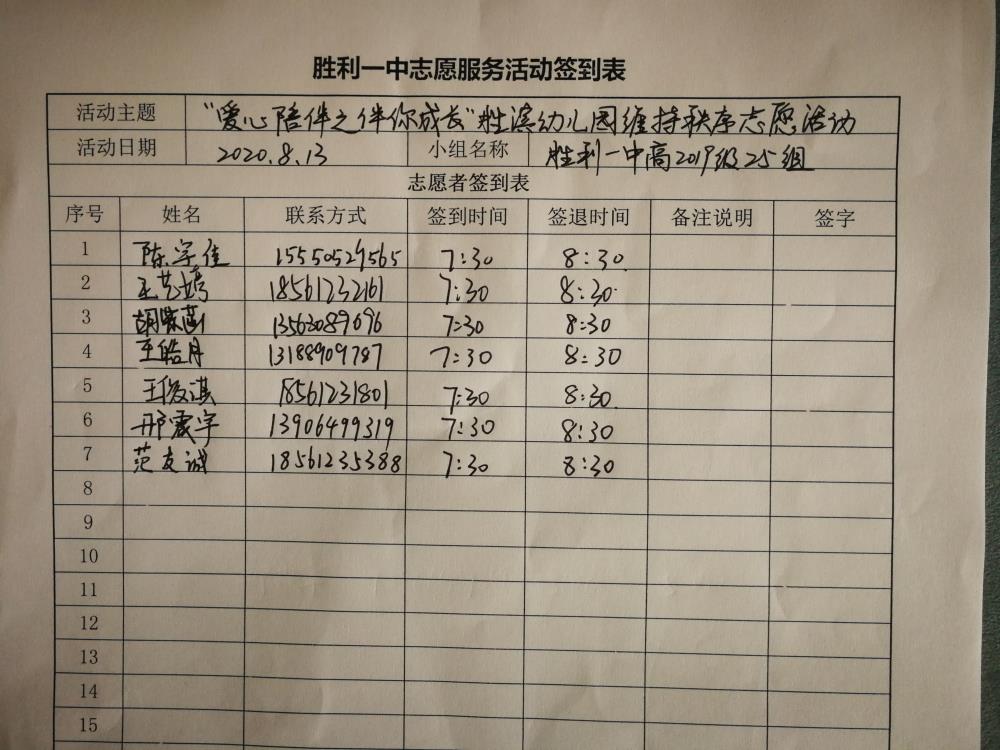 胜利一中志愿服务活动签到表
活动主题 "爱心陪伴之伴你成长"胜滨幼儿园维持秩序志愿活动
活动日期 2020.8.13 小组名称 胜利一中高2019级25组
志愿者签到表
序号 姓名 联系方式 签到时间 签退时间 备注说明 签字
1 陈宇佳 15550529565 7:30 8:30
2 王艺嫣 18561232161 7:30 8:30
3 胡 13563089696 7:30 8:30
4 王皓月 13188909787 7:30 8:30
5 王俊淇 18561231801 7:30 8:30
6 邢震宇 13906499319 7:30 8:30
7 范友诚 18561235388 7:30 8:30
8
9
10
11
12
13
14
15